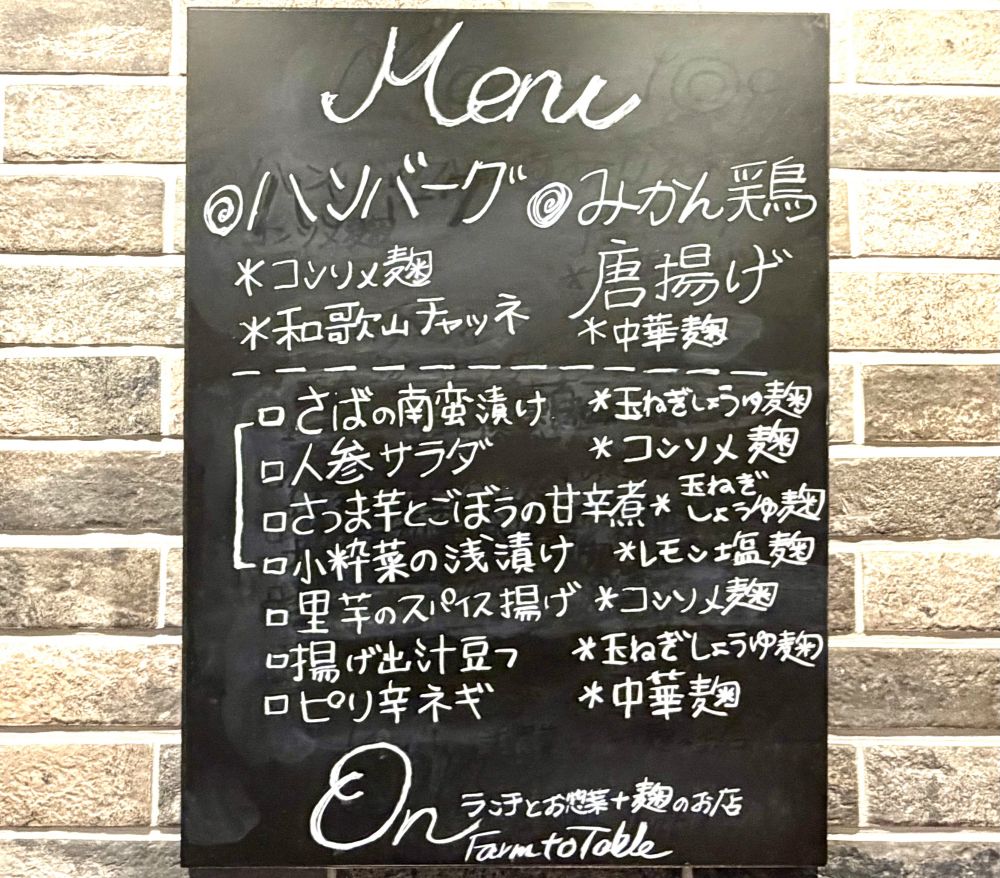 Menu
◎ハンバーグ
＊コンソメ麹
＊和歌山チャツネ
◎みかん鶏
唐揚げ
＊中華麹
□さばの南蛮漬け ＊玉ねぎしょうゆ麹
□人参サラダ ＊コンソメ麹
□さつま芋とごぼうの甘辛煮 ＊玉ねぎ
しょうゆ麹
□小粋菜の浅漬け ＊レモン塩麹
□里芋のスパイス揚げ ＊コンソメ麹
□揚げ出汁豆っ ＊玉ねぎしょうゆ麹
□ピリ辛ネギ ＊中華麹
On ランチとお惣菜+麹のお店
Farm to Table